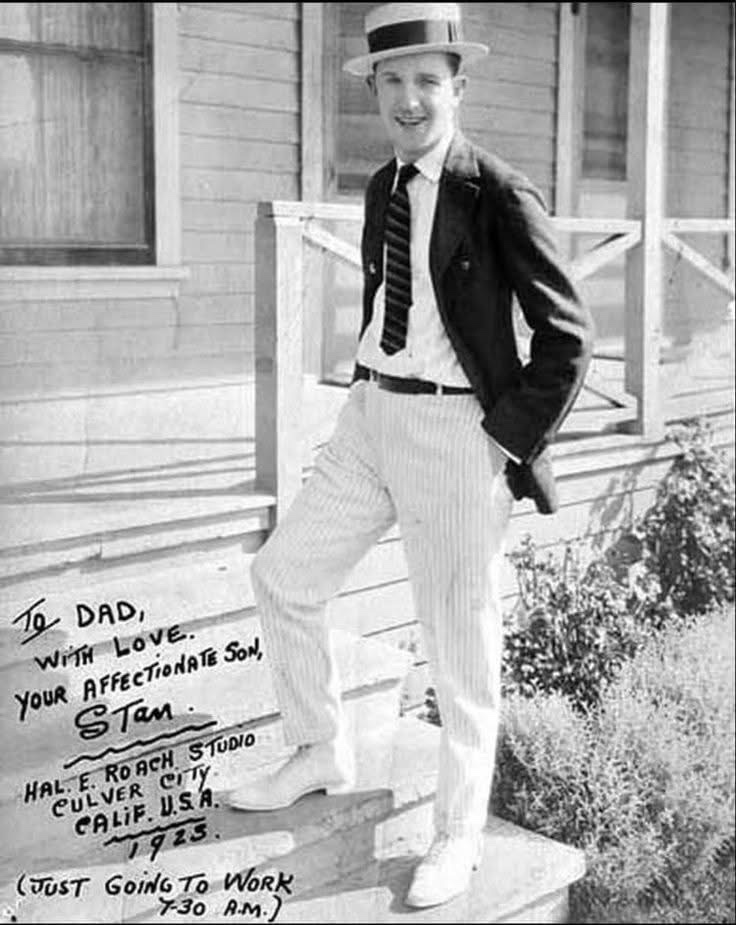 TO DAD,
WITH LOVE.
YOUR AFFECTIONATE SON,
STan.
HAL. E. ROACH STUDIO
CULVER CITY.
CALIF. U.S.A.
1925.
(JUST GOING TO WORK
7-30 A.M.)